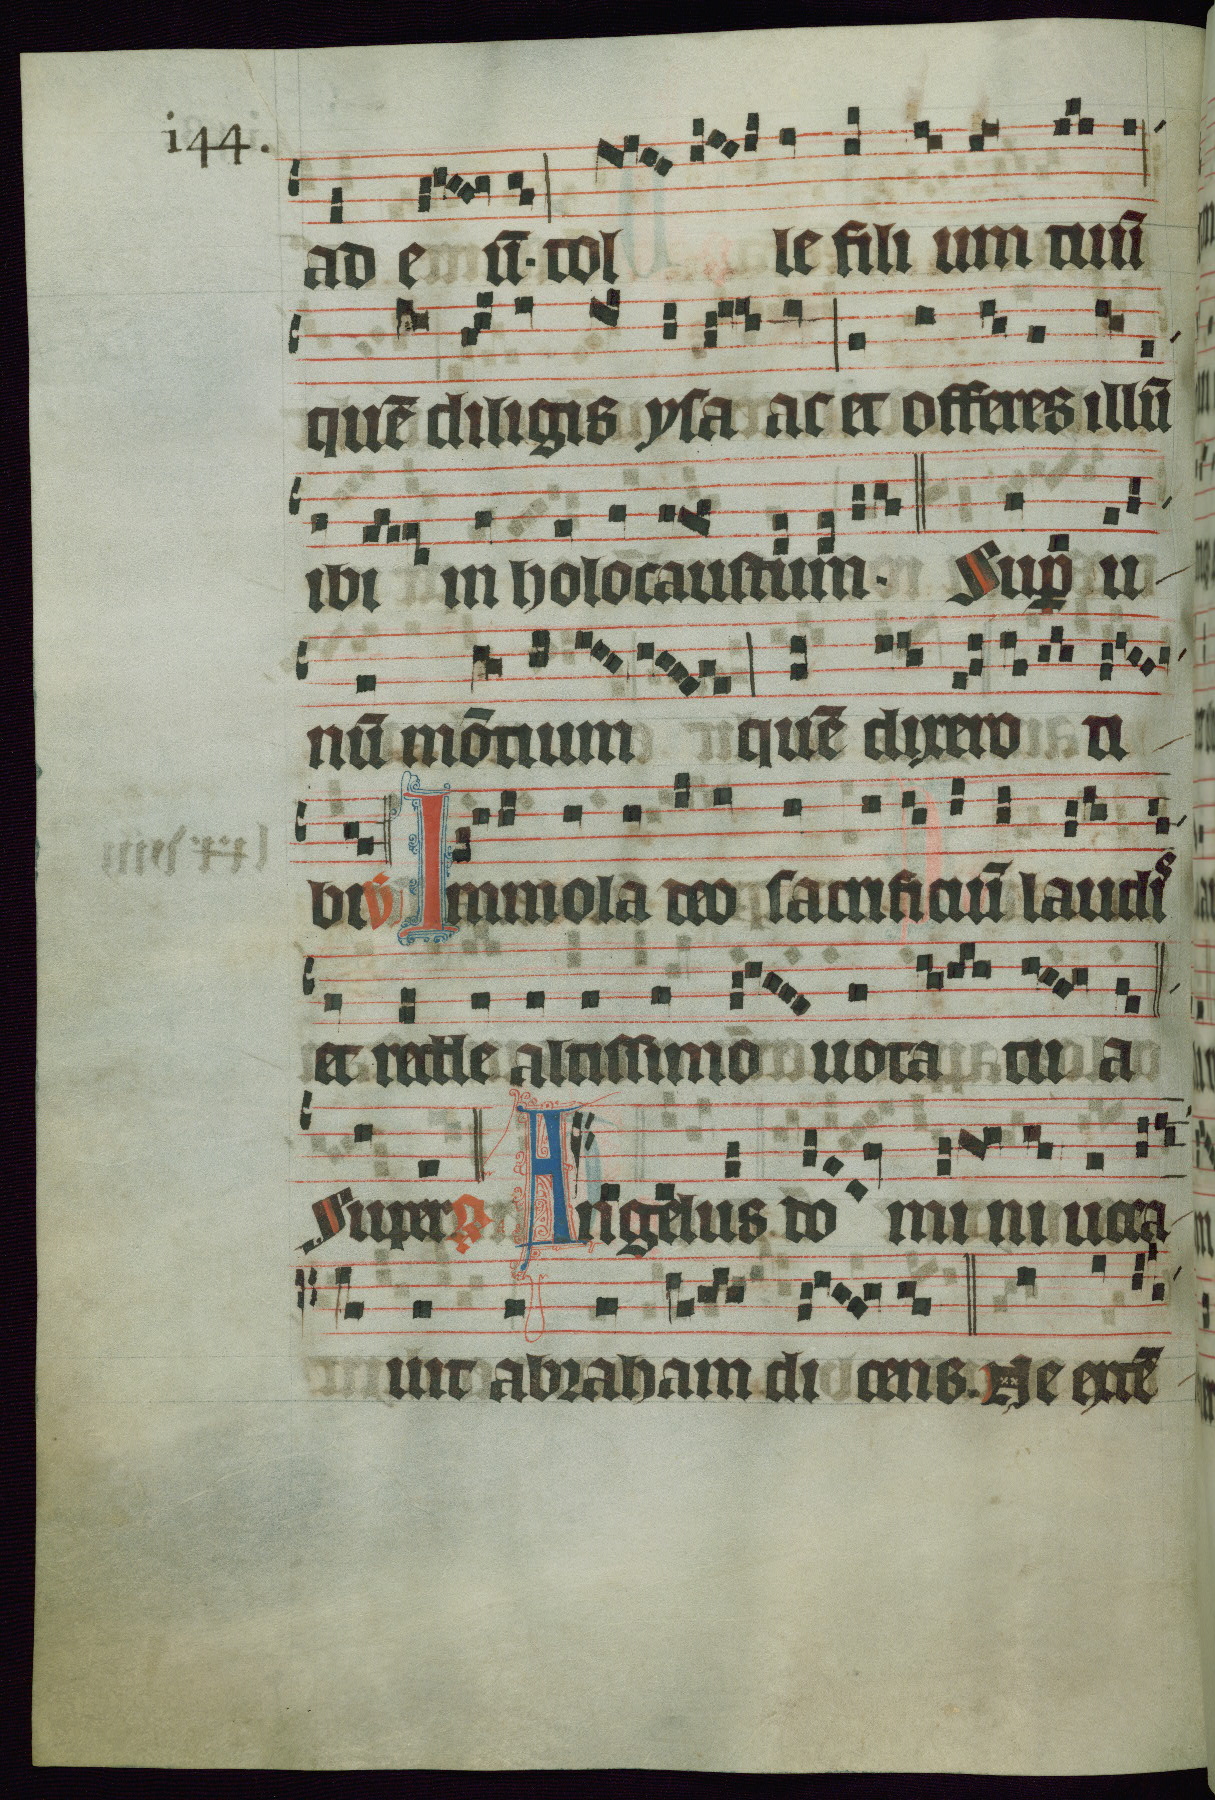 i44.
ad e ū· tol le fili um tuū
quē diligis ysa ac et offeres illū
ibi in holocaustum. Sup̱ u
nū mōtium quē dixero ti
bi ℣ Immola deo sacrificiū laudis
et redde altissimo uota tu a
Super ℟ Angelus do mi ni uoca
uit abraham di cens. Ne extē